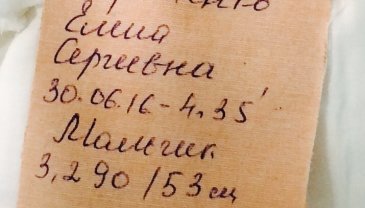 Елена
Сергеевна
30.06.16-4.35'
Мальчик
3,290/53см